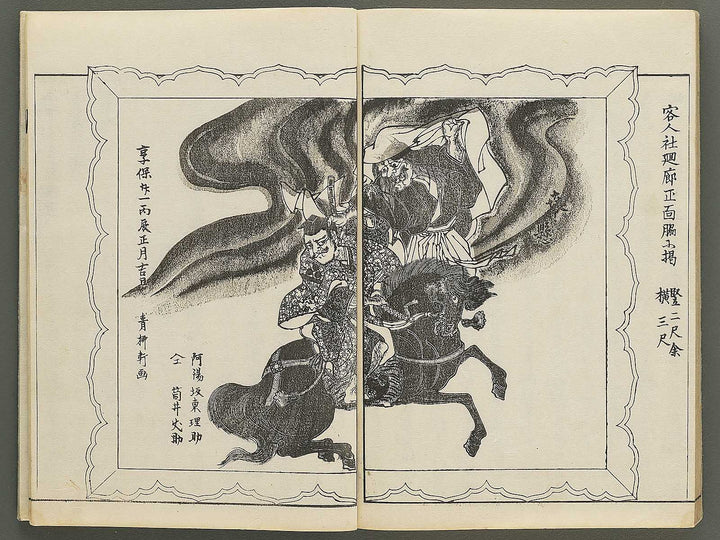 客人社廻廊正面脇ニ掲
竪二尺余
横三尺
享保廿一丙辰正月吉日
青柳軒画
阿陽坂東理助
仝 筒井父助